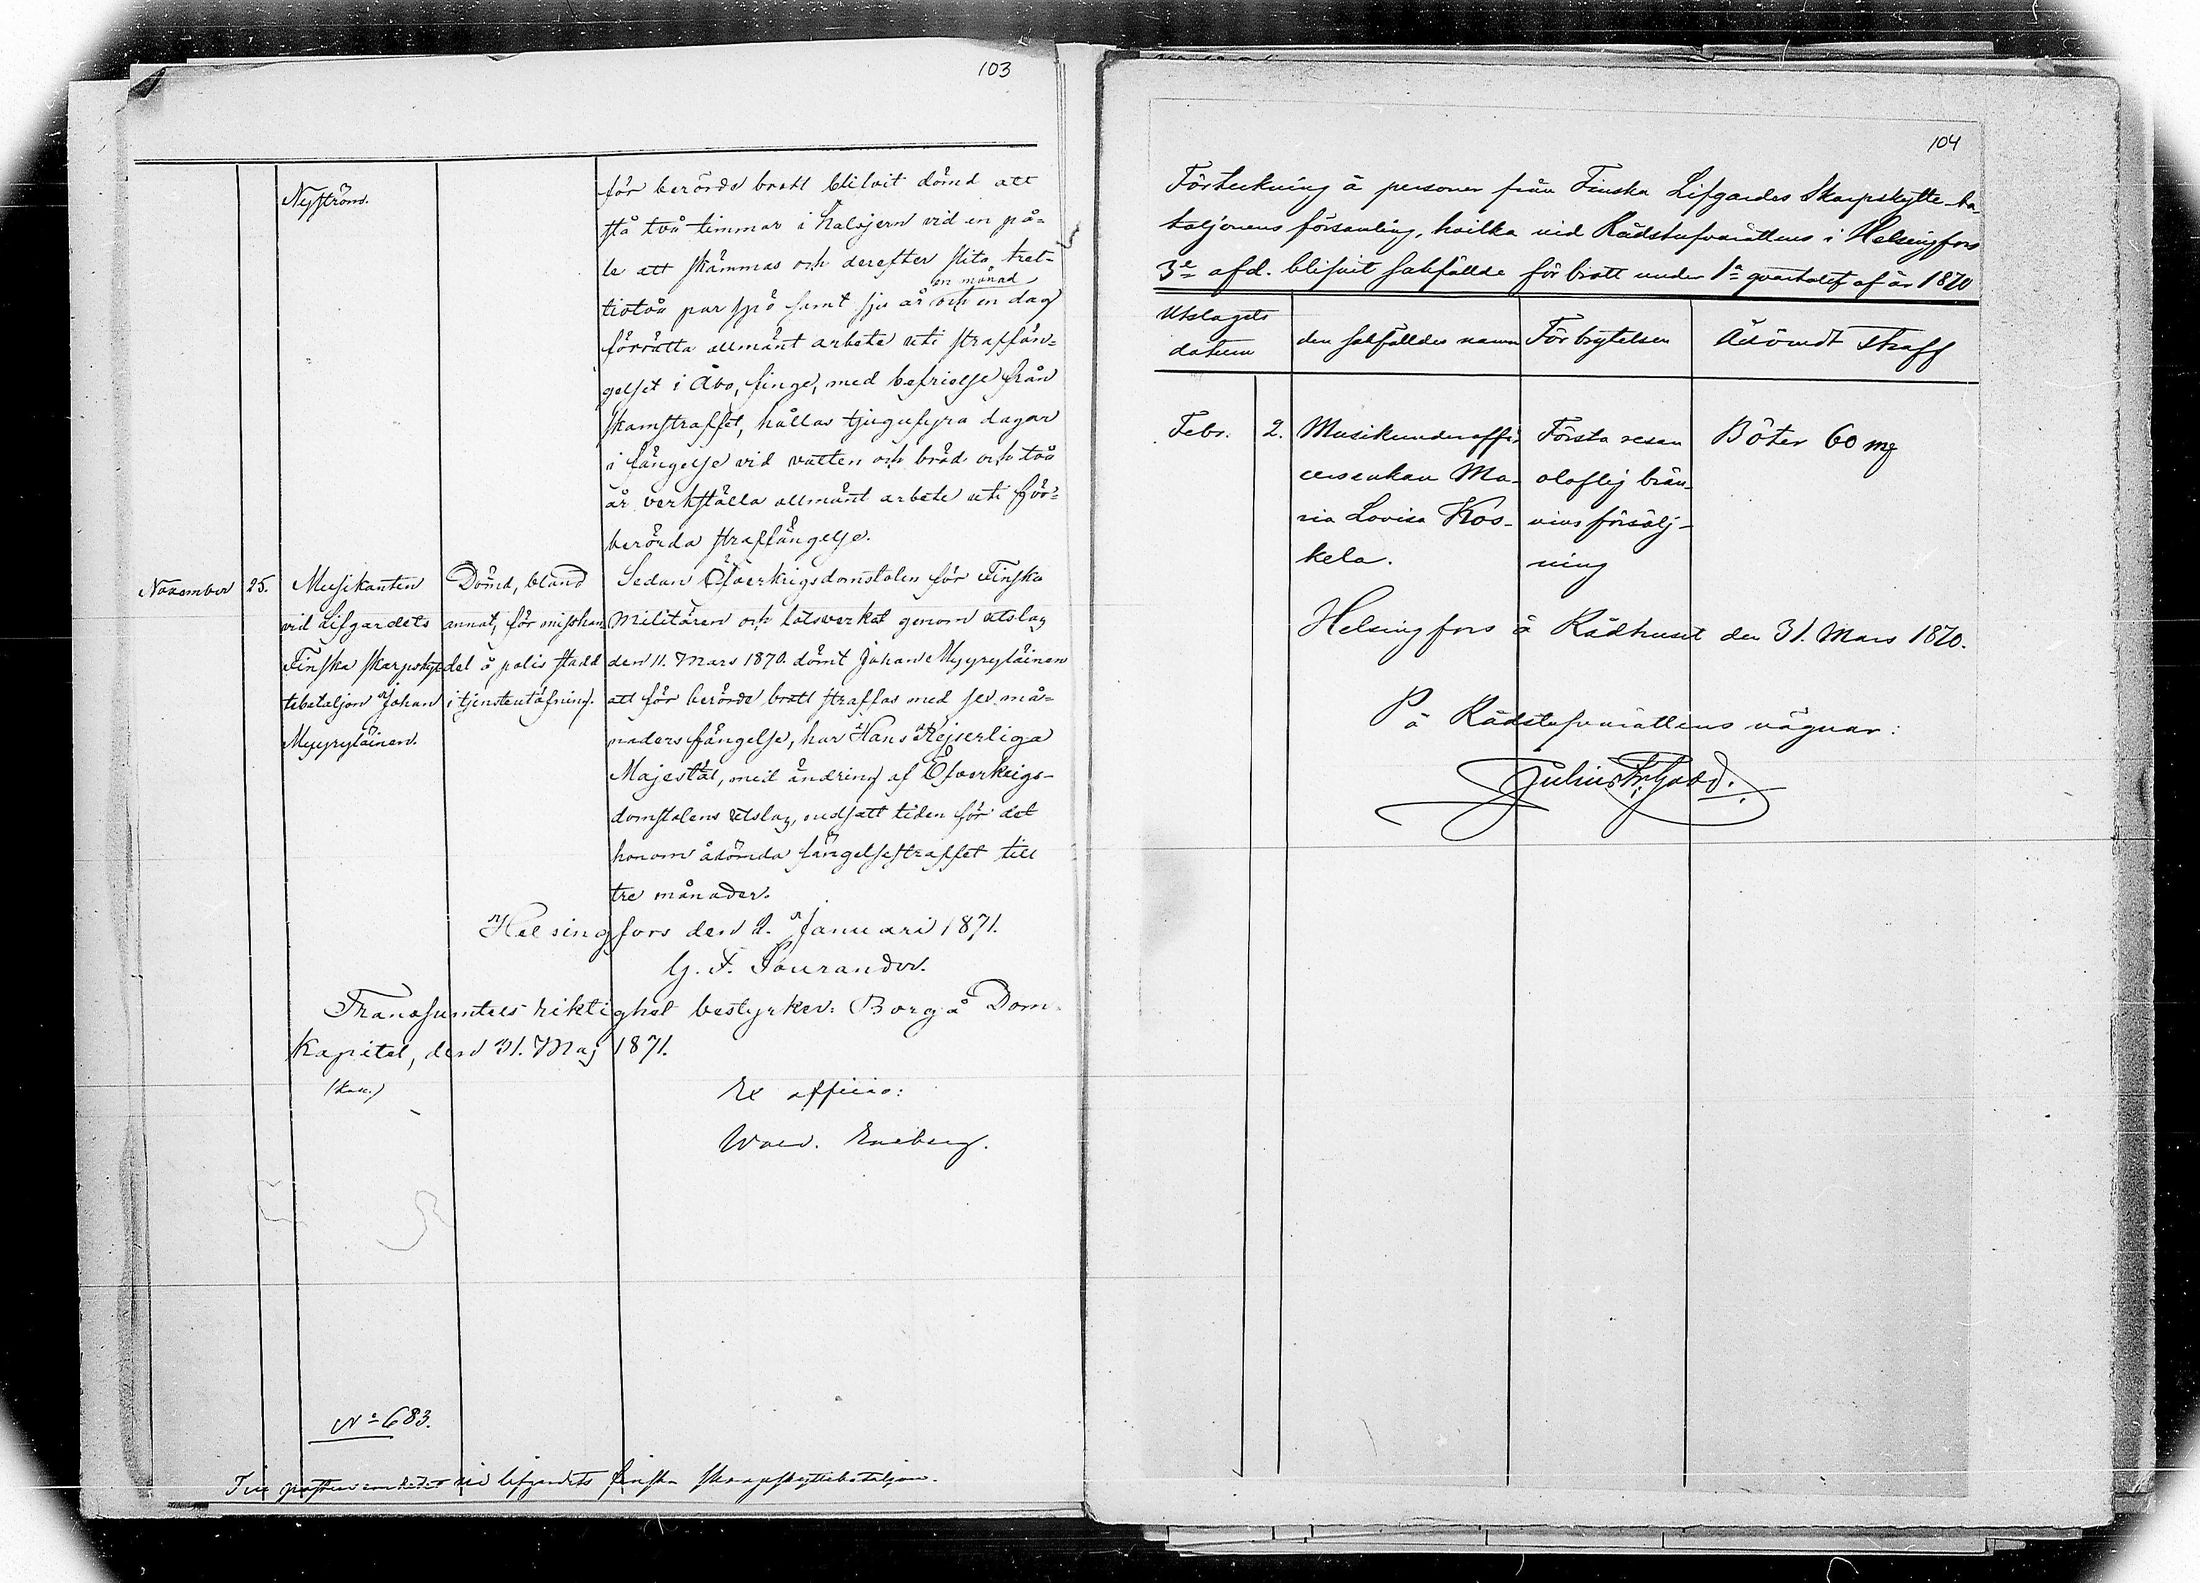 103
Nyström.
för berörde brott blifvit dömd att
stå två timmar i halsjern vid en på-
le att skämmas och derefter slita tret-
en månad
tiotvå par spö samt sju år och en dag
förrätta allmänt arbete uti straffän-
gelset i Åbo, finge, med befrielse från
skamstraffet, hållas tjugufyra dagar
i fängelse vid vatten och bröd och två
år verkställa allmänt arbete uti för-
berörda straffängelse.
November 25.
Musikanten
vid Lifgardets
Finska skarpskyt-
tebataljon Johan
Myyryläinen.
Dömd, bland
annat, för misshan-
del å polis stadd
i tjensteutöfning.
Sedan Öfverkrigsdomstolen för Finska
Militären och lotsverket genom utslag
den 11. Mars 1870 dömt Johan Myyryläinen
att för berörde brott straffas med sex må-
naders fängelse, har Hans Kejserliga
Majestät, med ändring af Öfverkrigs-
domstolens utslag, nedsatt tiden för det
honom ådömda fängelsestraffet till
tre månader.
Helsingfors den 2. Januari 1871.
G. F. Sourander.
Transumtets riktighet bestyrker: Borgå Dom-
kapitel, den 31. Maj 1871.
Ex officio:
Wald. Eneberg.
No 683.
Till pastorsembetet vid lifgardets finska skarpskyttebataljon.
104
Förteckning å personer från Finska Lifgardes Skarpskytte-ba-
taljonens församling, hvilka vid Rådstufvurättens i Helsingfors
3e afd. blifvit sakfällde för brott under 1a qvartalet af år 1870
Utslagets
datum
den sakfälldes namn
Förbrytelsen
Ådömdt straff
Febr. 2.
Musikunderoffi-
cersenkan Ma-
ria Lovisa Kos-
kela.
Första resan
oloflig brän-
vins försälj-
ning
Böter 60 mg
Helsingfors å Rådhuset den 31. Mars 1870.
På Rådstufvurättens vägnar: